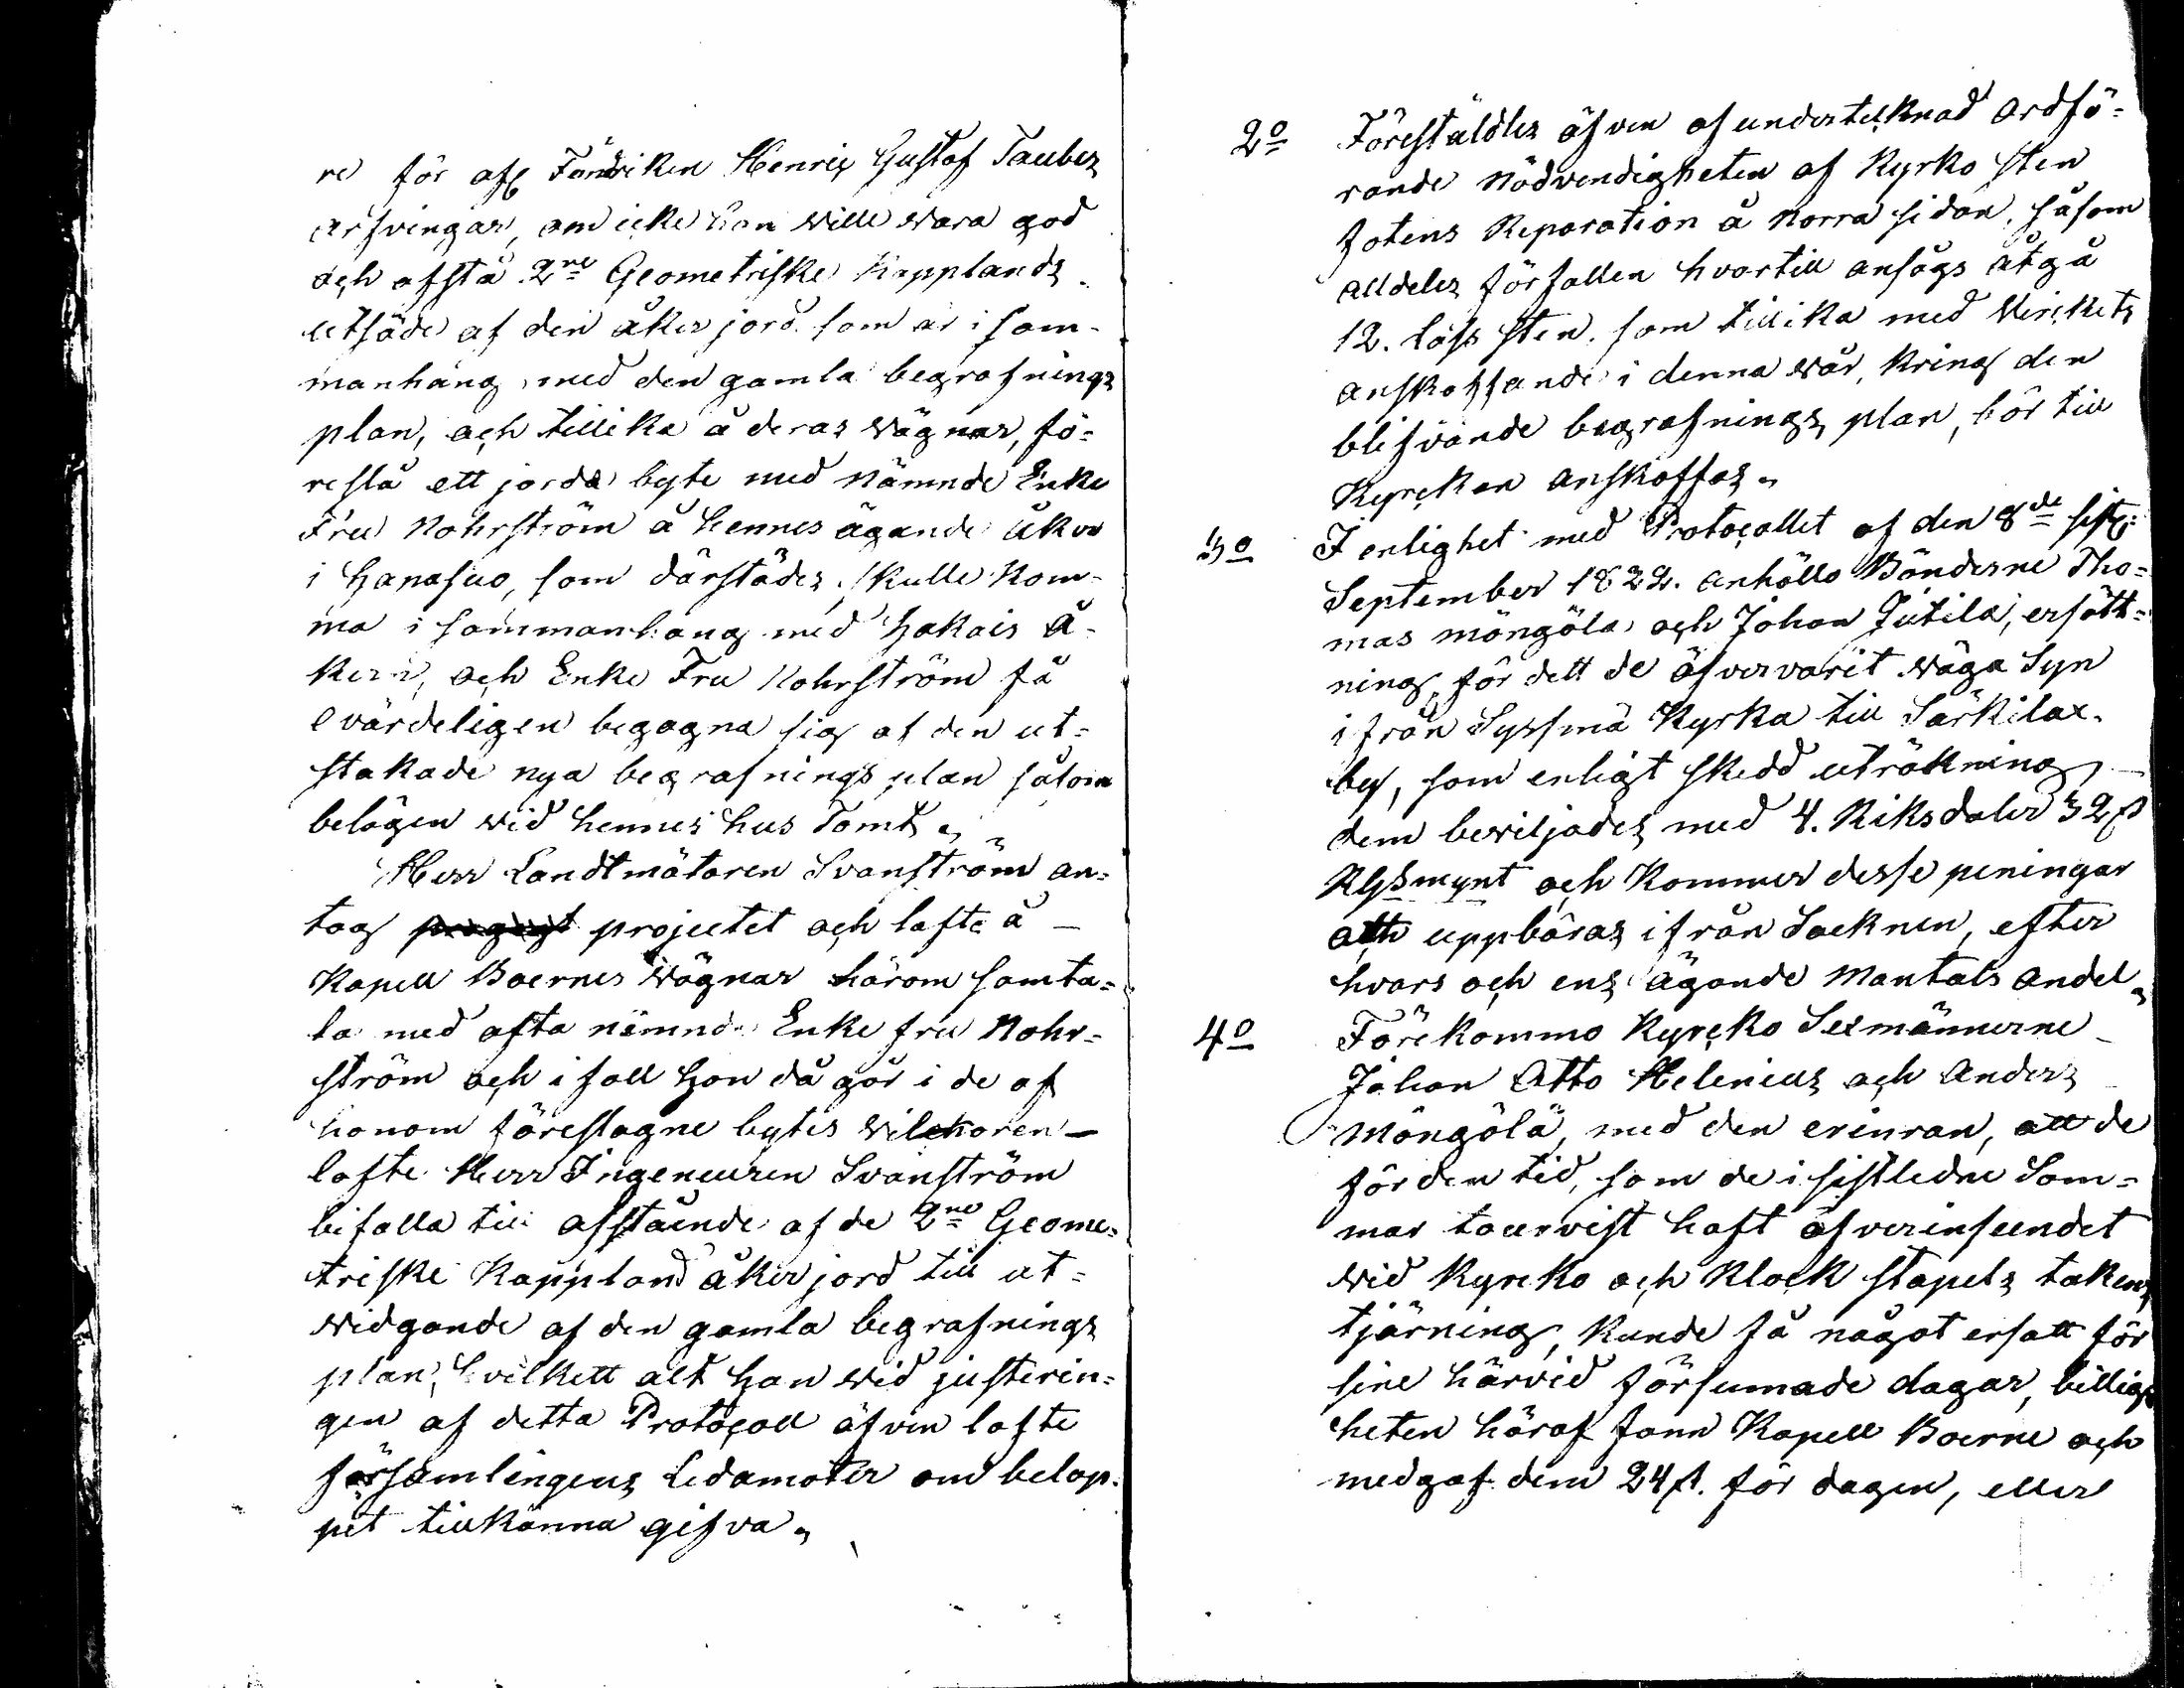 re för afl Fändriken Henric Gustaf Taubes
arfvingar, om icke han wille wara god
och afstå 2ne Geometriske Kapplands
utsäde af den åker jord som är i sam-
manhang med den gamla begrafnings
plan, och tillika å deras wägnar, fö=
reslå ett jorda byte med nämnde Enke
Fru Nohrström å hennes ägande åker
i Hanasuo, som därstädes skulle kom-
ma i sammanhang med Hakais å-
kern, och Enke Fru Nohrström få
evärdeligen begagna sig af den ut=
stakade nya begrafnings plan såsom
belägen wid hennes hus Tomt.
Herr Landtmätaren Svanström an=
tog projectet och lofte å –
Kapell Boernes wägnar härom samta=
la med ofta nämnde Enke fru Nohr=
ström och i fall hon då går i de af
honom föreslagne bytes wilckoren –
lofte Herr Ingeneuren Svanström
bifalla till afstående af de 2ne Geome=
triske Kappland åker jord till ut=
widgande af den gamla begrafnings
plan, hvilkett alt han wid justerin=
gen af detta Protocoll äfven lofte
församlingens Ledamoter om belop=
pet tillkänna gifva.
2o Föreställdes äfven af undertecknad ordfö=
rande nödvendigheten af Kyrko sten
fotens Reparation å norra sidan, såsom
alldeles förfallen hvartill ansågs åtgå
12. lass sten, som tillika med Virckets
anskaffande i denna wår, kring den
blifvande begrafnings plan, bör till
Kyrckan anskaffas.
3o I enlighet med Protocollet af den 8de sistl:
September 1822. anhöllo Bönderne Tho=
mas Mängölä och Johan Jutila, ersätt=
ning, för dett de öfvervarit wäga Syn
ifrån Syssmä Kyrka till Särkilax
by, som enligt skedd uträkning –
dem bewiljades med 4. Riksdaler 32 ß
Rgssmynt och kommer desse peningar
att uppbäras ifrån Socknen, efter
hvars och ens ägande Mantals andel.
4o Förekommo Kyrcko Sexmännerne
Johan Otto Helenius och Anders
Mängölä, med den erinran, att de
för den tid, som de i sistledne Som=
mar tourvist haft öfverinseendet
wid Kyrcko och Klock stapels takens
tjärning, kunde få något ersatt för
sine härvid försumade dagar, billig
heten häraf fann Kapell Boerne och
medgaf dem 24 ß. för dagen, eller